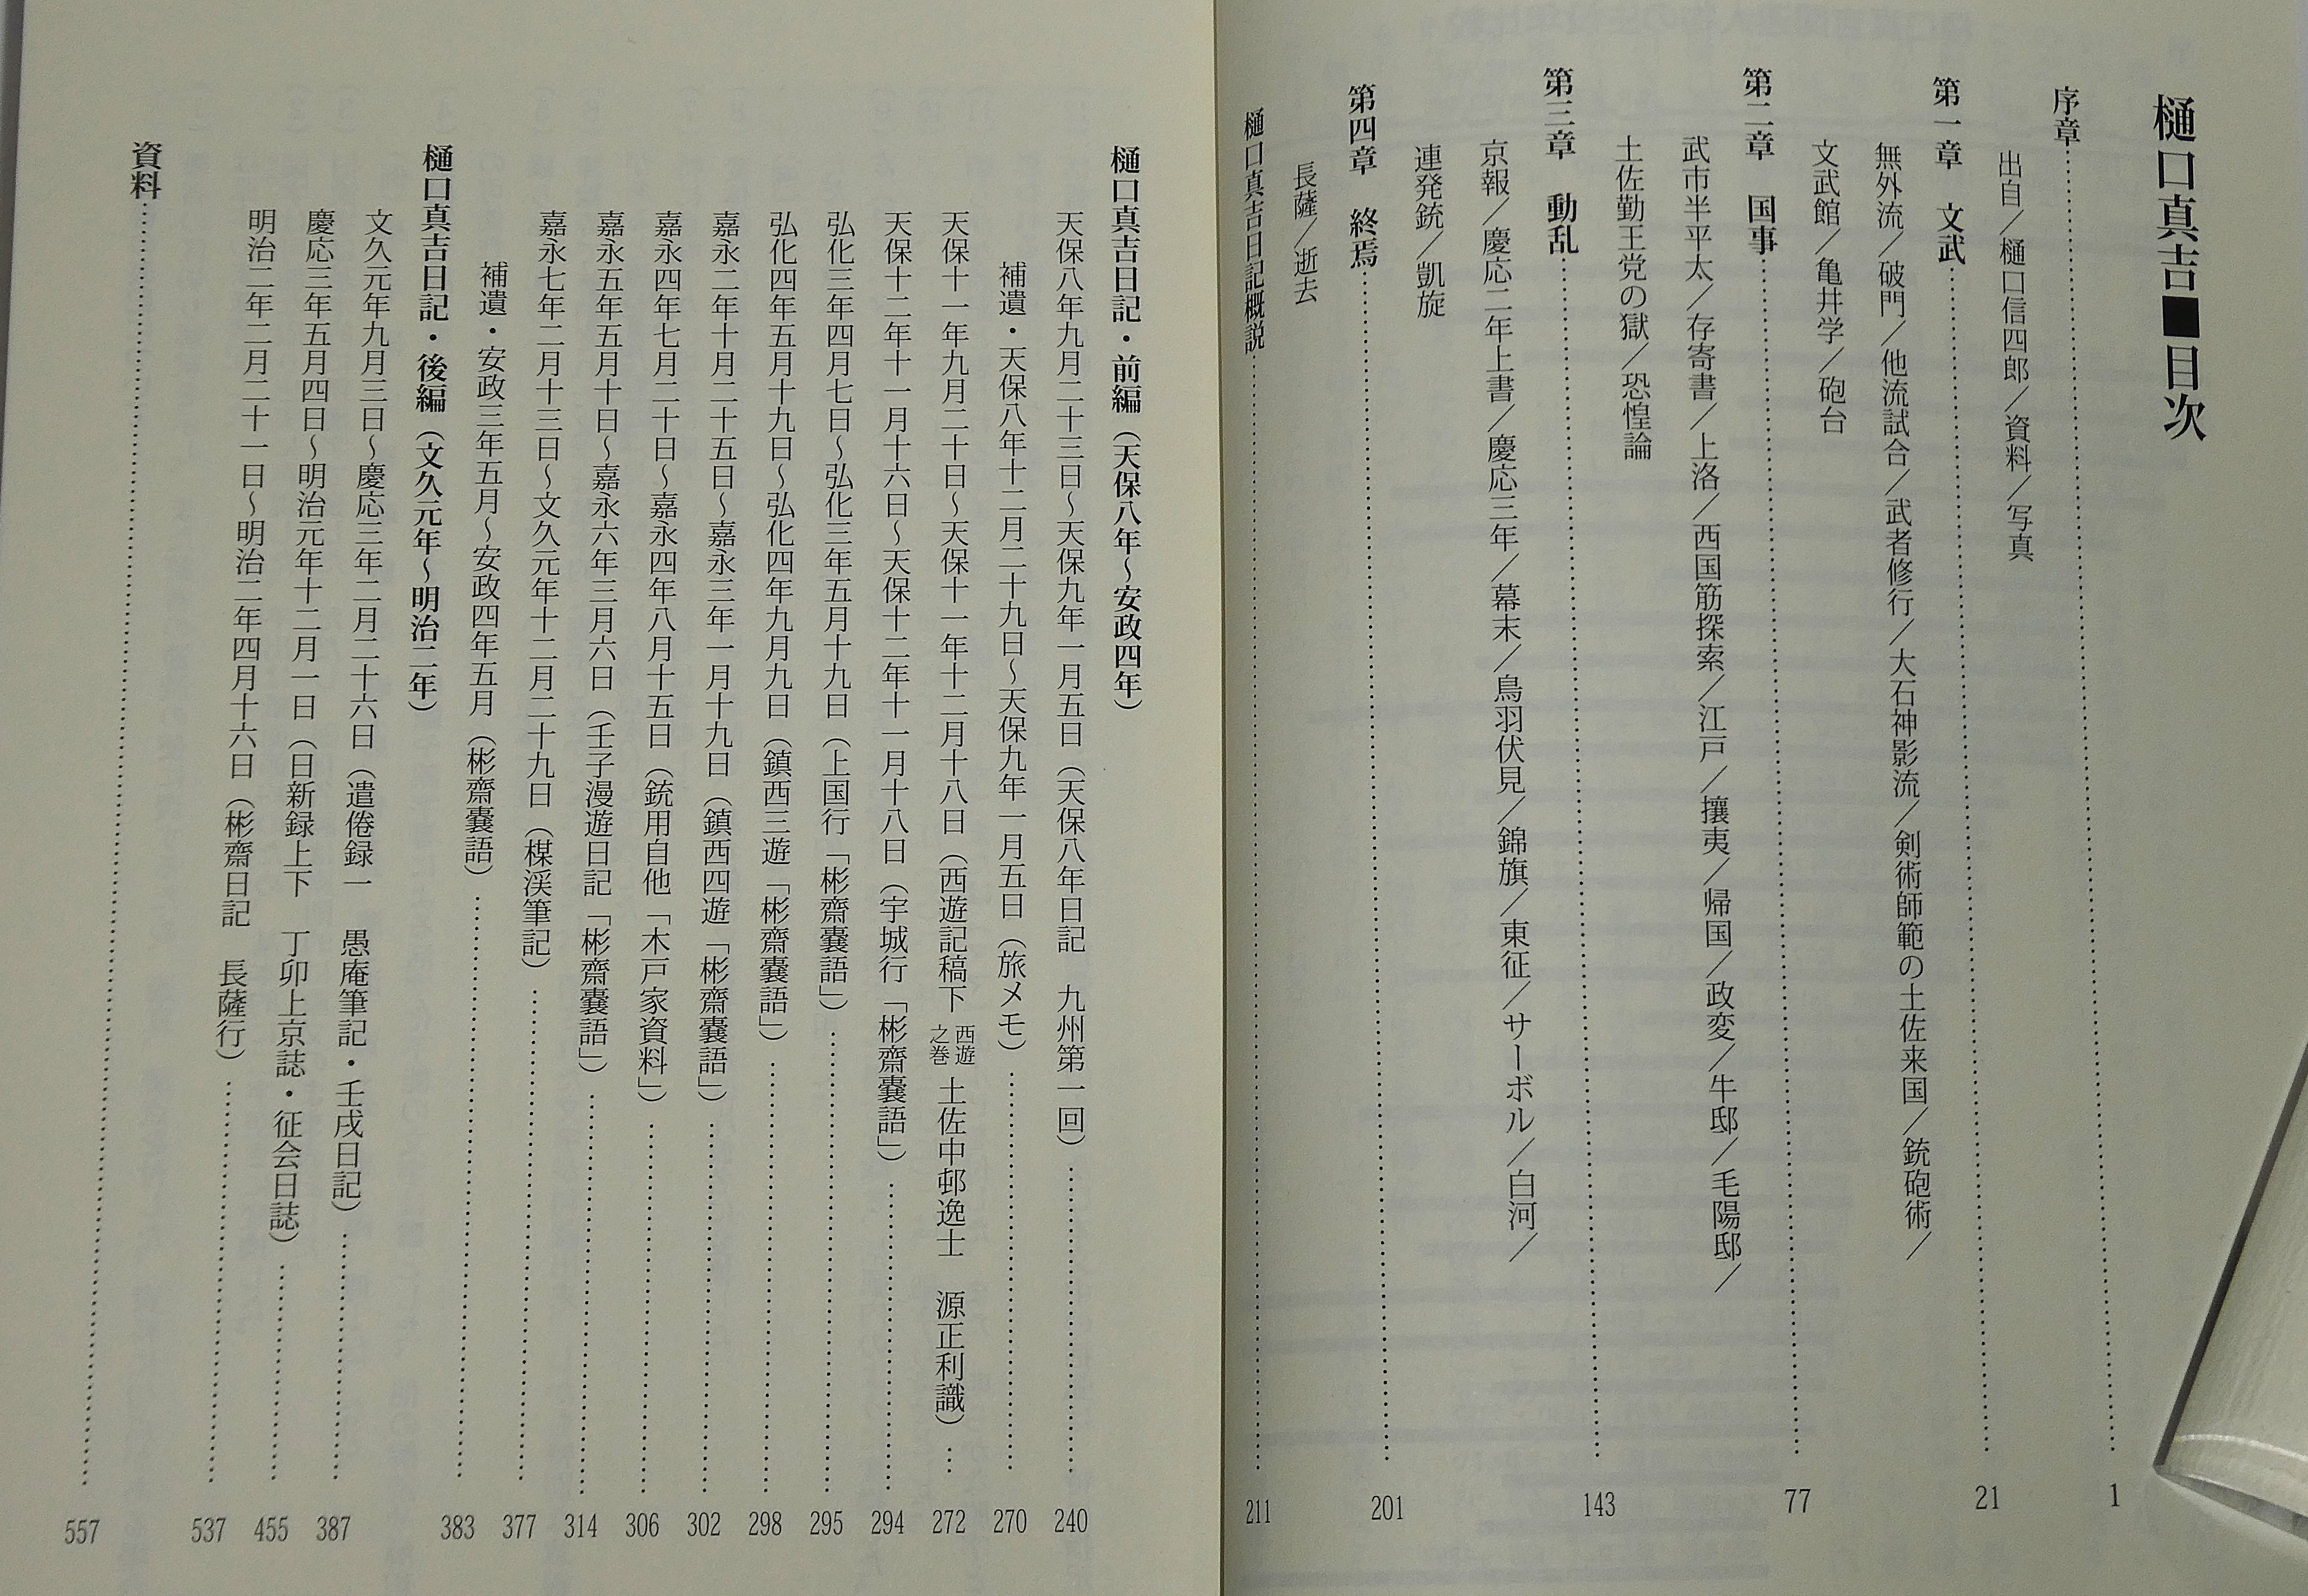 樋口真吉■目次
序章……………… 1
出自／樋口信四郎／資料／写真
第一章　文武……………… 21
無外流／破門／他流試合／武者修行／大石神影流／剣術師範の土佐来国／銃砲術／
文武館／亀井学／砲台
第二章　国事……………… 77
武市半平太／存寄書／上洛／西国筋探索／江戸／攘夷／帰国／政変／牛邸／毛陽邸／
土佐勤王党の獄／恐惶論
第三章　動乱……………… 143
京報／慶応二年上書／慶応三年／幕末／鳥羽伏見／錦旗／東征／サーボル／白河／
連発銃／凱旋
第四章　終焉……………… 201
長薩／逝去
樋口真吉日記概説……………… 211
樋口真吉日記・前編（天保八年～安政四年）
天保八年九月二十三日～天保九年一月五日（天保八年日記　九州第一回）……………… 240
補遺・天保八年十二月二十九日～天保九年一月五日（旅メモ）……………… 270
天保十一年九月二十日～天保十一年十二月十八日（西遊記稿下　西遊之巻　土佐中邨逸士　源正利識）… 272
天保十二年十一月十六日～天保十二年十一月十八日（宇城行「彬齋嚢語」）……………… 294
弘化三年四月七日～弘化三年五月十九日（上国行「彬齋嚢語」）……………… 295
弘化四年五月十九日～弘化四年九月九日（鎮西三遊「彬齋嚢語」）……………… 298
嘉永二年十月二十五日～嘉永三年一月十九日（鎮西四遊「彬齋嚢語」）……………… 302
嘉永四年七月二十日～嘉永四年八月十五日（銃用自他「木戸家資料」）……………… 306
嘉永五年五月十日～嘉永六年三月六日（壬子漫遊日記「彬齋嚢語」）……………… 314
嘉永七年二月十三日～文久元年十二月二十九日（楳渓筆記）……………… 377
補遺・安政三年五月～安政四年五月（彬齋嚢語）……………… 383
樋口真吉日記・後編（文久元年～明治二年）
文久元年九月三日～慶応三年二月二十六日（遣倦録一　愚庵筆記・壬戌日記）……………… 387
慶応三年五月四日～明治元年十二月一日（日新録上下　丁卯上京誌・征会日誌）……………… 455
明治二年二月二十一日～明治二年四月十六日（彬齋日記　長薩行）……………… 537
資料……………… 557